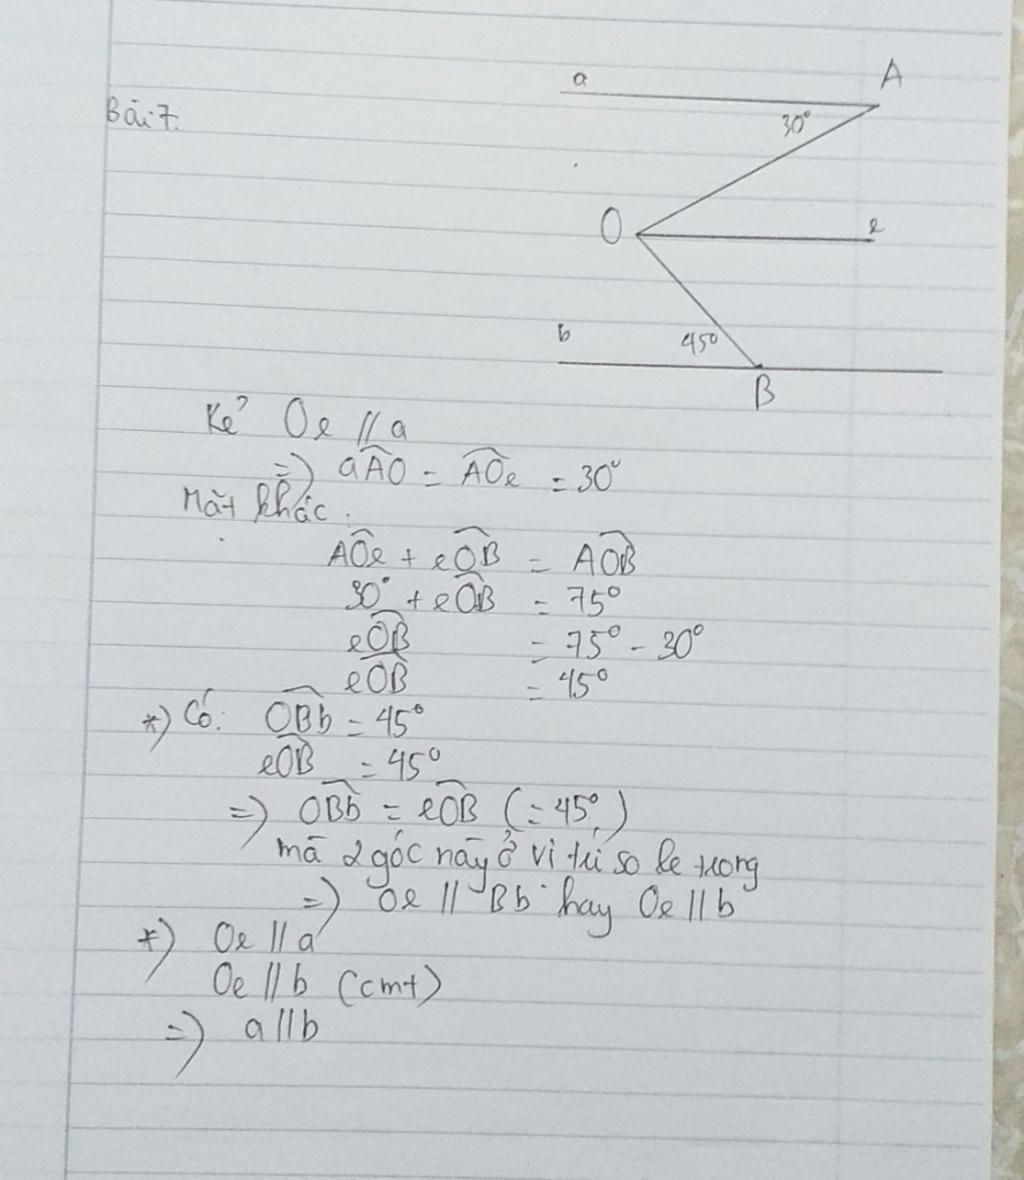 a
A
Bài 7.
30°
O
e
b
45°
B
Kẻ Oe // a
=) aÂO = AÔe = 30°
Mặt khác.
AÔe + eÔB = AÔB
30° + eÔB = 75°
eÔB = 75° - 30°
eÔB = 45°
*) Có: OB̂b = 45°
eÔB = 45°
=) OB̂b = eÔB (= 45°)
mà 2 góc này ở vị trí so le trong
=) Oe // Bb hay Oe // b
*) Oe // a
Oe // b (cmt)
=) a // b